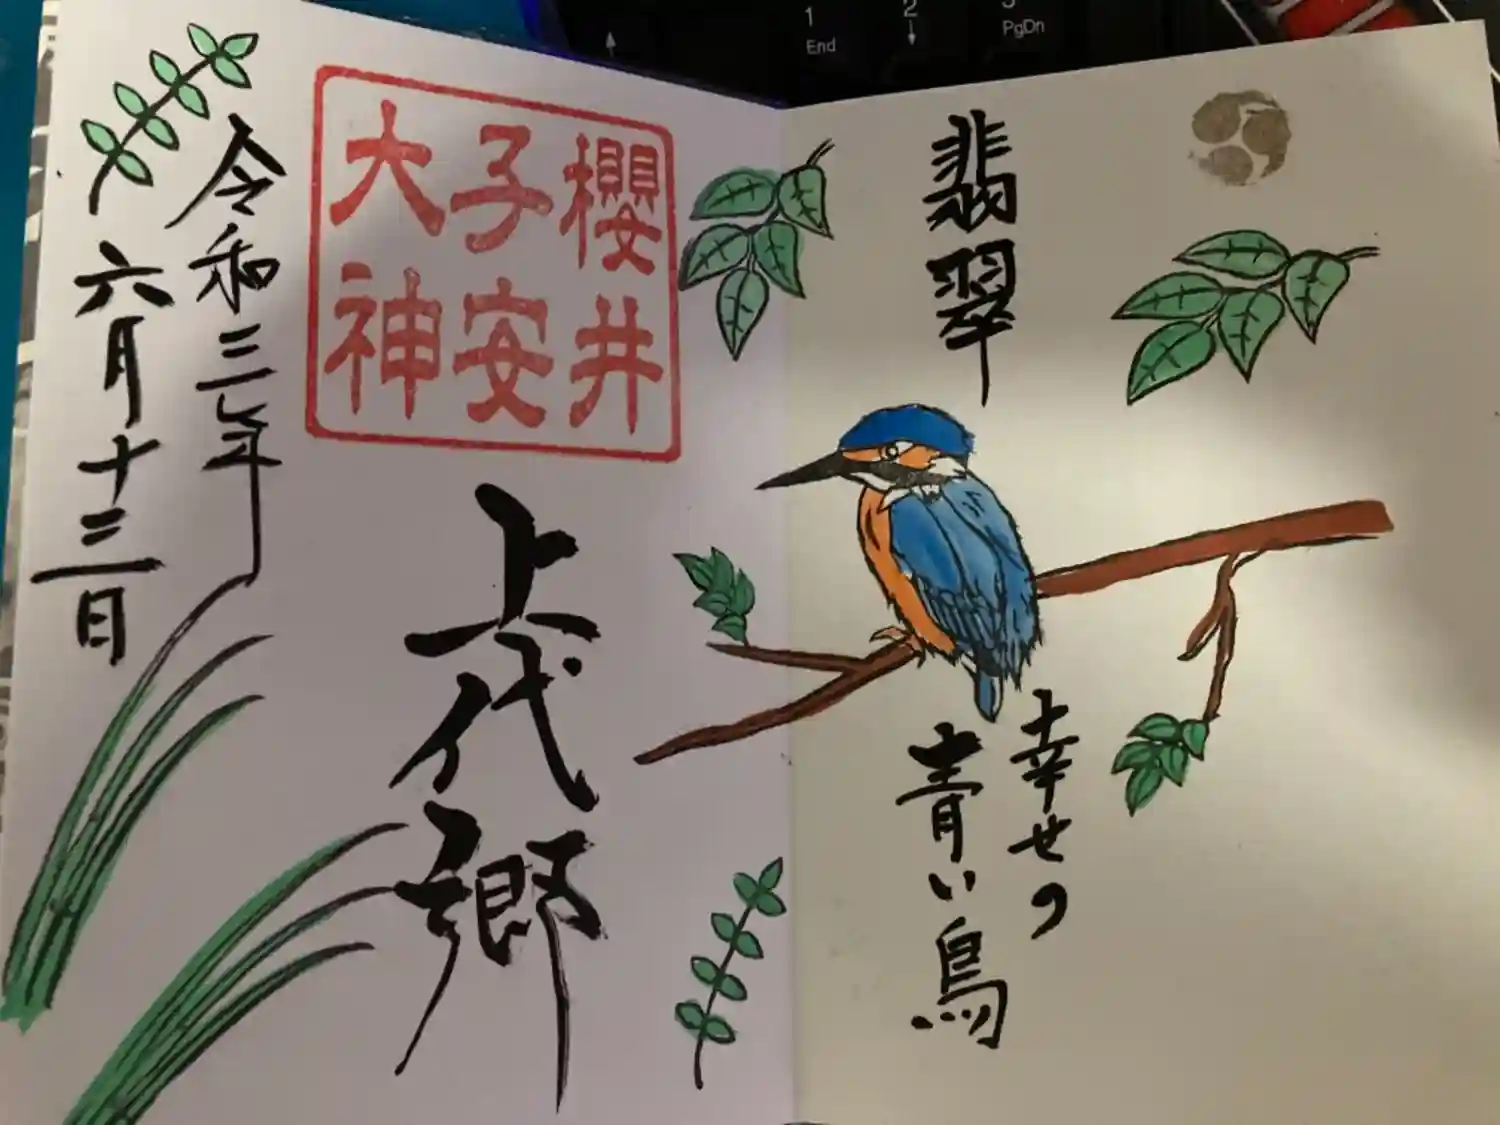 1
End
2
↓
PgDn
翡翠
幸せの
青い鳥
櫻井
子安
大神
上代郷
令和三年
六月十三日